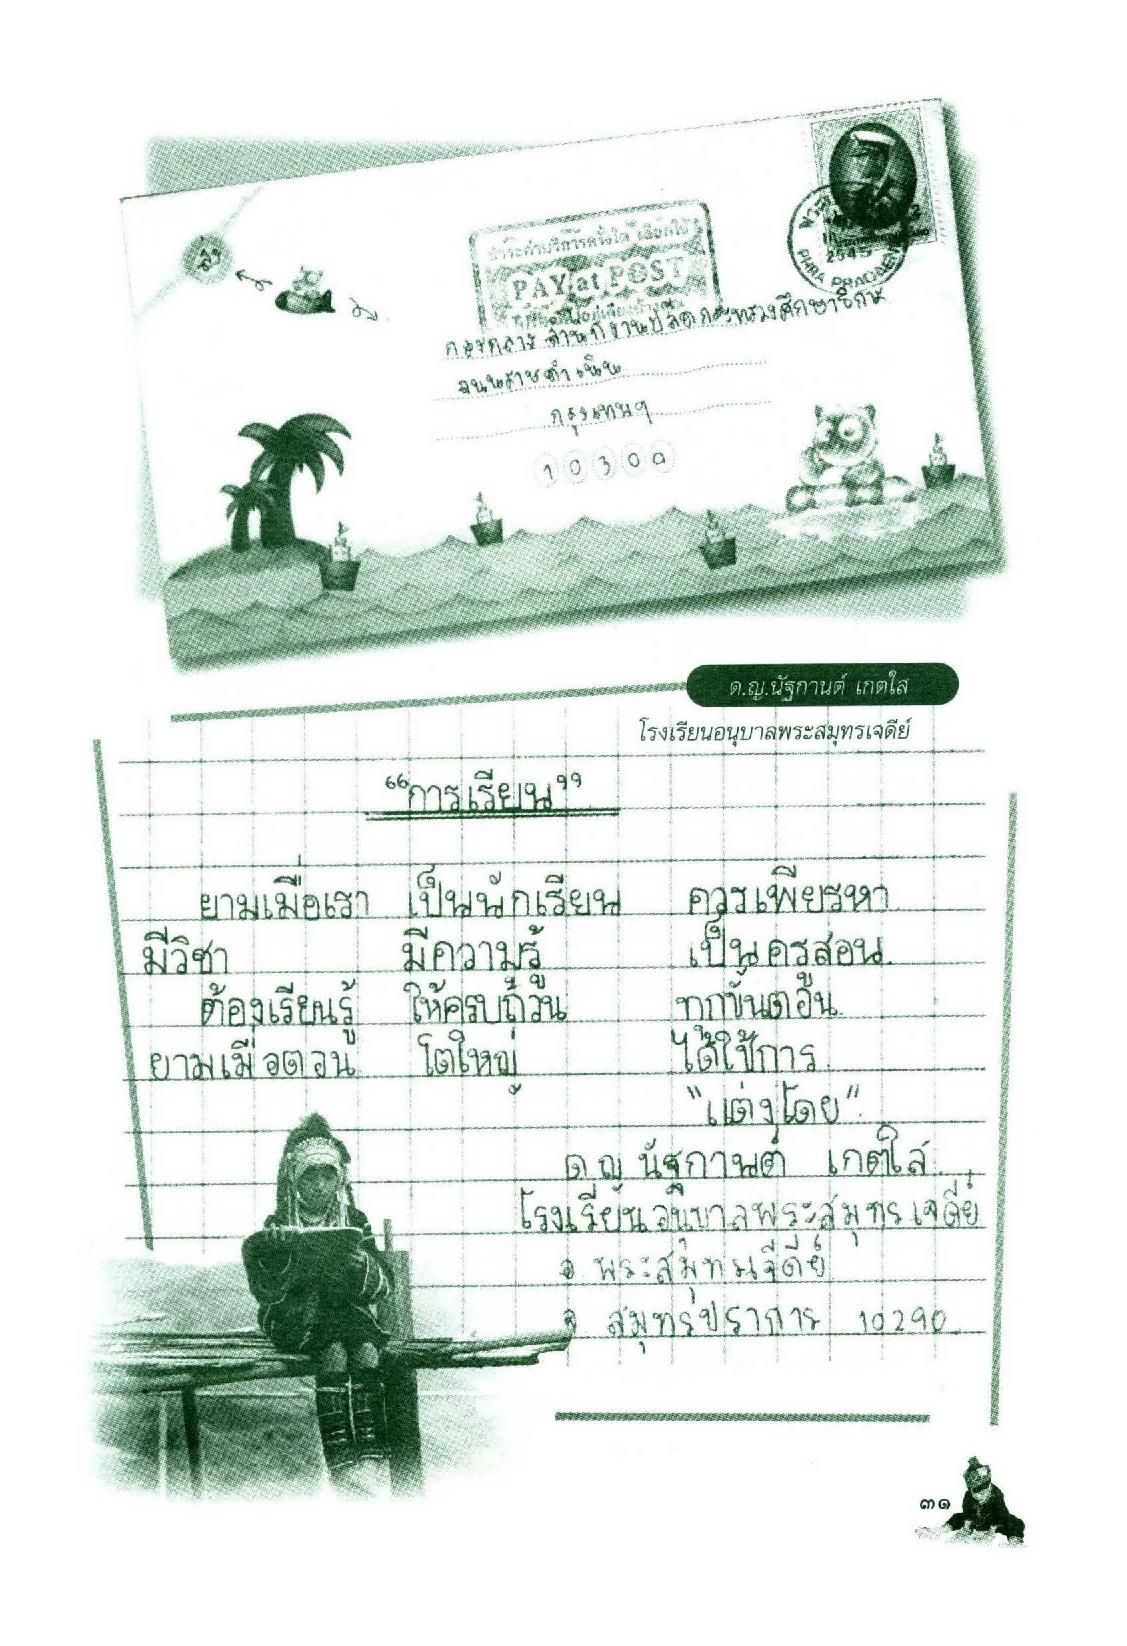 ชำระค่าบริการครั้งใด เลือกใช้
PAY at POST
2545
PHRA PRADAENG
กองกลาง สำนักงานปลัดกระทรวงศึกษาธิการ
ถนนราชดำเนิน
กรุงเทพฯ
10300
ด.ญ.นัฐกานต์ เกตใส
โรงเรียนอนุบาลพระสมุทรเจดีย์
"การเรียน"
ยามเมื่อเรา เป็นนักเรียน ควรเพียรหา
มีวิชา มีความรู้ เป็นครูสอน
ต้องเรียนรู้ ให้ครบถ้วน ทุกขั้นตอน
ยามเมื่อตอน โตใหญ่ ได้ใช้การ
"แต่งโดย"
ด.ญ นัฐกานต์ เกตใส
โรงเรียนอนุบาลพระสมุทรเจดีย์
อ พระสมุทรเจดีย์
จ สมุทรปราการ 10290
๓๑